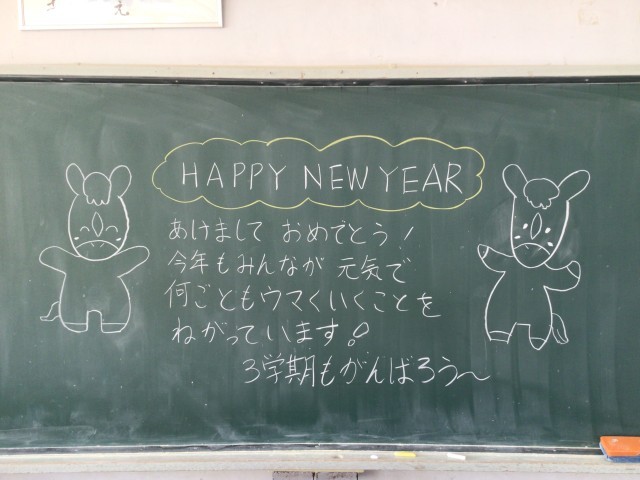 HAPPY NEW YEAR
あけまして おめでとう!
今年もみんなが 元気で
何ごともウマくいくことを
ねがっています!
3学期もがんばろう〜